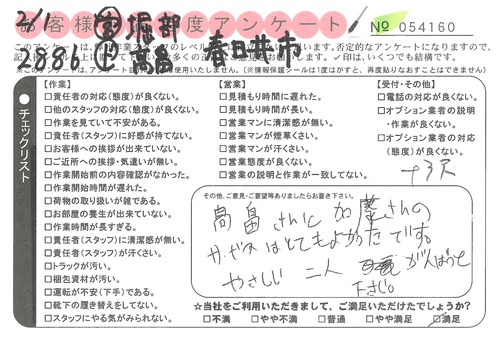 2/1 営 堀部
お客様 度アンケート
№ 054160
2886 高畠 春日井市
※このアンケートは、
(※情報保護シールは1度はがすと、再度貼りなおすことはできません)
チェックリスト
【作業】
□責任者の対応(態度)が良くない。
□他のスタッフの対応(態度)が良くない。
□作業を見ていて不安がある。
□責任者(スタッフ)に好感が持てない。
□お客様への挨拶が出来ていない。
□ご近所への挨拶・気遣いが無い。
□作業開始前の内容確認がなかった。
□作業開始時間が遅れた。
□荷物の取り扱いが雑である。
□お部屋の養生が出来ていない。
□作業時間が長すぎる。
□責任者(スタッフ)に清潔感が無い。
□責任者(スタッフ)が汗くさい。
□トラックが汚い。
□梱包資材が汚い。
□運転が不安(下手)である。
□靴下の履き替えをしてない。
□スタッフにやる気がみられない。
【営業】
□見積もり時間に遅れた。
□見積もり時間が長い。
□営業マンに清潔感が無い。
□営業マンが煙草くさい。
□営業マンが汗くさい。
□営業態度が良くない。
□営業の説明と作業が一致してない。
【受付・その他】
□電話の対応が良くない。
□オプション業者の説明
・作業が良くない。
□オプション業者の対応
(態度)が良くない。
その他、ご意見・ご要望等ありましたらお書き下さい。
高畠さんと加 さんの
サービスはとてもよかったです。
やさしい 二人 がんばって
下さい。
☆当社をご利用いただきまして、ご満足いただけたでしょうか?
□不満 □やや不満 □普通 □やや満足 ☑満足